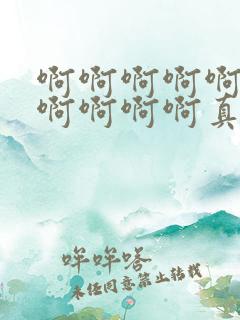 啊啊啊啊啊
啊啊啊啊真
哞哞嗒
未经同意禁止转载